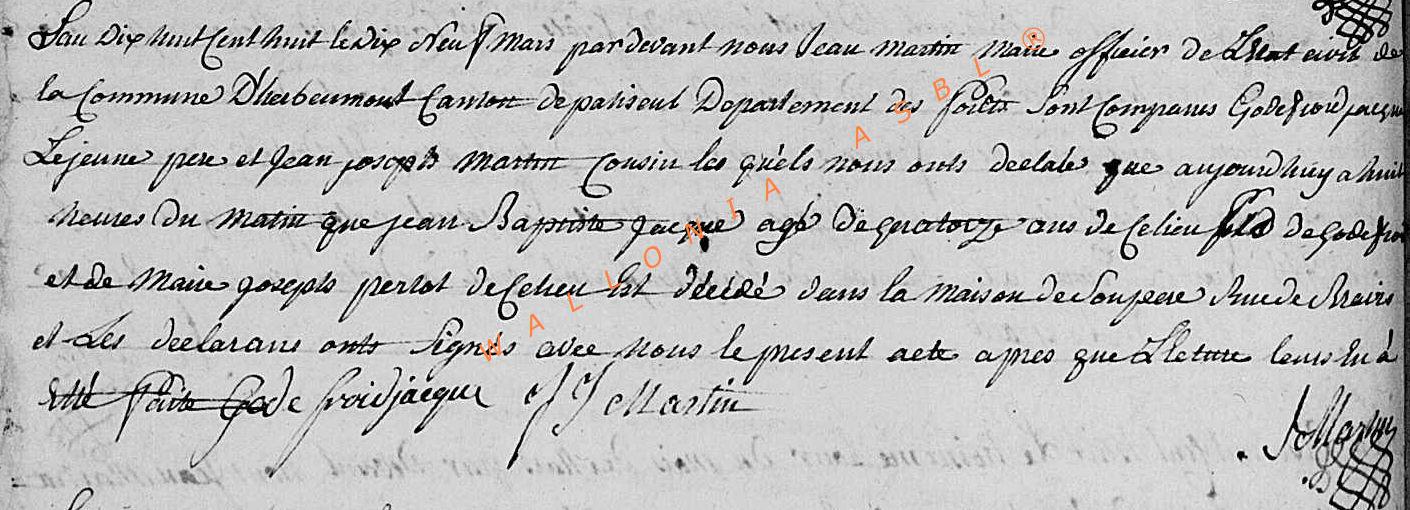 Lan Dix huit Cent huit le Dix Neuf Mars par devant nous Jean Martin Maire officier de L'Etat civil de
la Commune D'herbeumont Canton de paliseul Departement des forêts Sont Comparus Godefroid jacque
Lejeune pere et Jean joseph Martin Cousin les quels nous onts declaré que aujourdhuy a huit
heures du Matin que jean Baptiste Jacque agé De quatorze ans de Celieu fils de Godefroi
et de Marie joseph pertot de Celieu Est décédé dans la Maison de Son pere Rue de
et Les declarans onts Signés avec nous le present acte apres que Lletture leurs En à
etté faite Godefroid jacque J J Martin
J Martin
WALLONIA ASBL ®